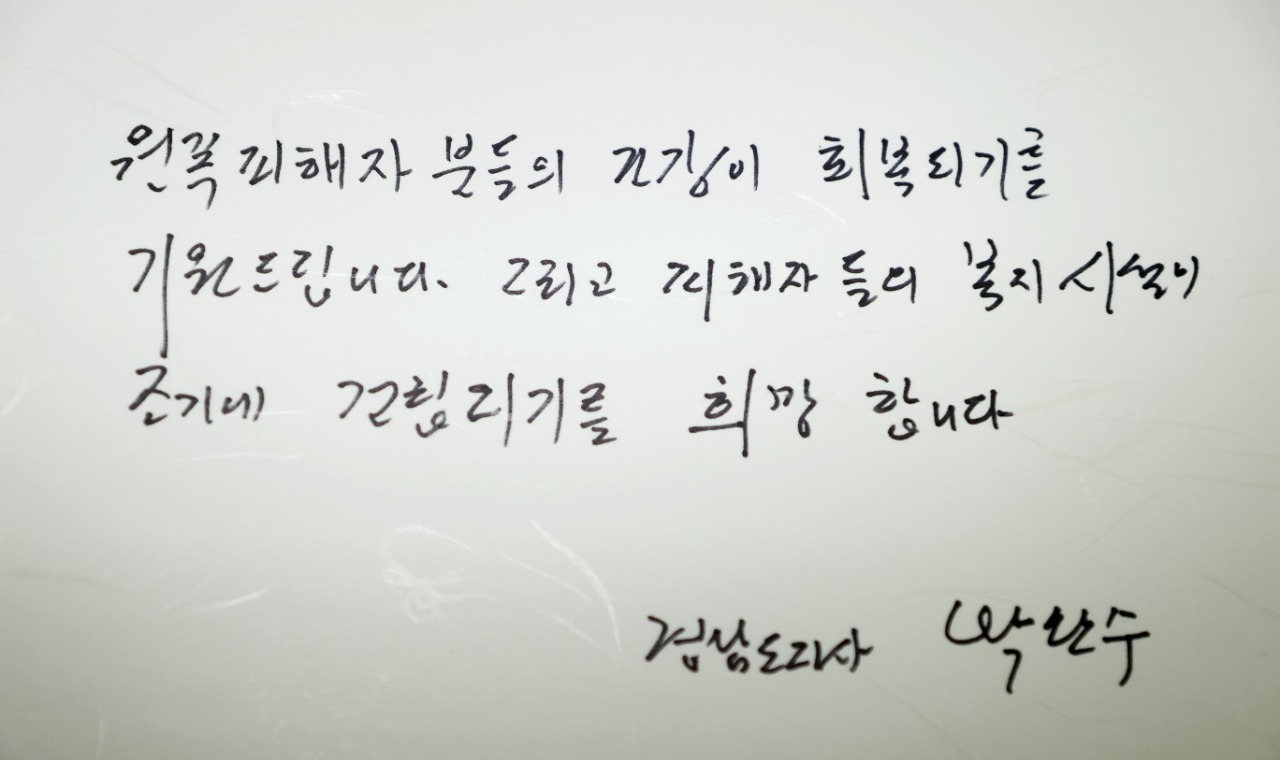 원폭피해자분들의 건강이 회복되기를
기원드립니다. 그리고 피해자들의 복지시설이
조기에 건립되기를 희망합니다
경상도지사 박완수